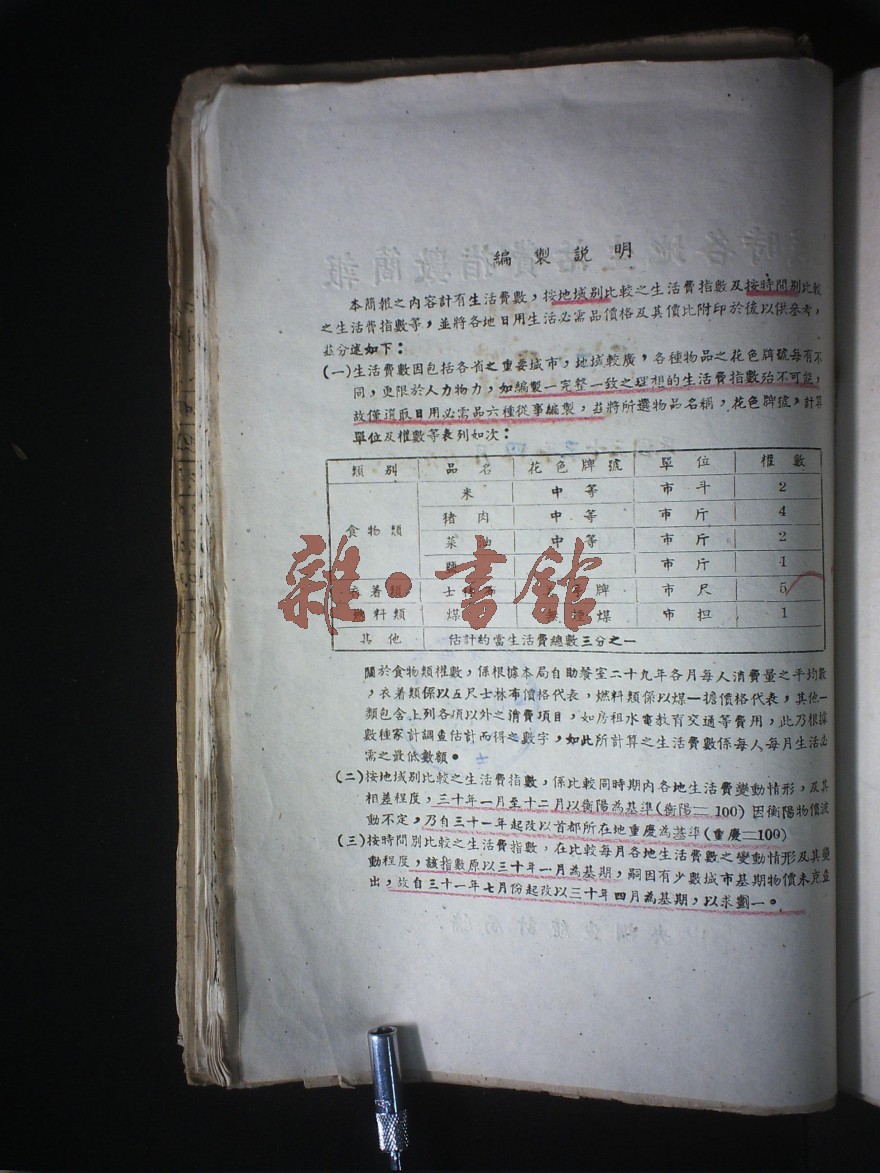 編製說明
本簡報之內容計有生活費數，按地域别比較之生活費指數及按時間别比較
之生活費指數等，並將各地日用生活必需品價格及其價比附印於後以供參考，
茲分述如下：
(一)生活費數因包括各省之重要城市，地域較廣，各種物品之花色牌號每有不
同，更限於人力物力，如編製一完整一致之理想的生活費指數殆不可能，
故僅選取日用必需品六種從事編製，茲將所選物品名稱，花色牌號，計算
單位及權數等表列如次：
類別 品名 花色牌號 單位 權數
米 中等 市斗 2
猪肉 中等 市斤 4
食物類 菜油 中等 市斤 2
鹽 市斤 1
衣著類 士 牌 市尺 5
燃料類 煤 煤 市担 1
其他 估計約當生活費總數三分之一
雜·書館
關於食物類權數，係根據本局自助餐室二十九年各月每人消費量之平均數
，衣着類係以五尺士林布價格代表，燃料類係以煤一擔價格代表，其他一
類包含上列各項以外之消費項目，如房租水電教育交通等費用，此乃根據
數種家計調查估計而得之數字，如此所計算之生活費數係每人每月生活必
需之最低數額。
(二)按地域别比較之生活費指數，係比較同時期內各地生活費變動情形，及其
相差程度，三十年一月至十二月以衡陽為基準(衡陽＝100)因衡陽物價波
動不定，乃自三十一年起改以首都所在地重慶為基準(重慶＝100)
(三)按時間别比較之生活費指數，在比較每月各地生活費數之變動情形及其變
動程度，該指數原以三十年一月為基期，嗣因有少數城市基期物價未克查
出，故自三十一年七月份起改以三十年四月為基期，以求劃一。